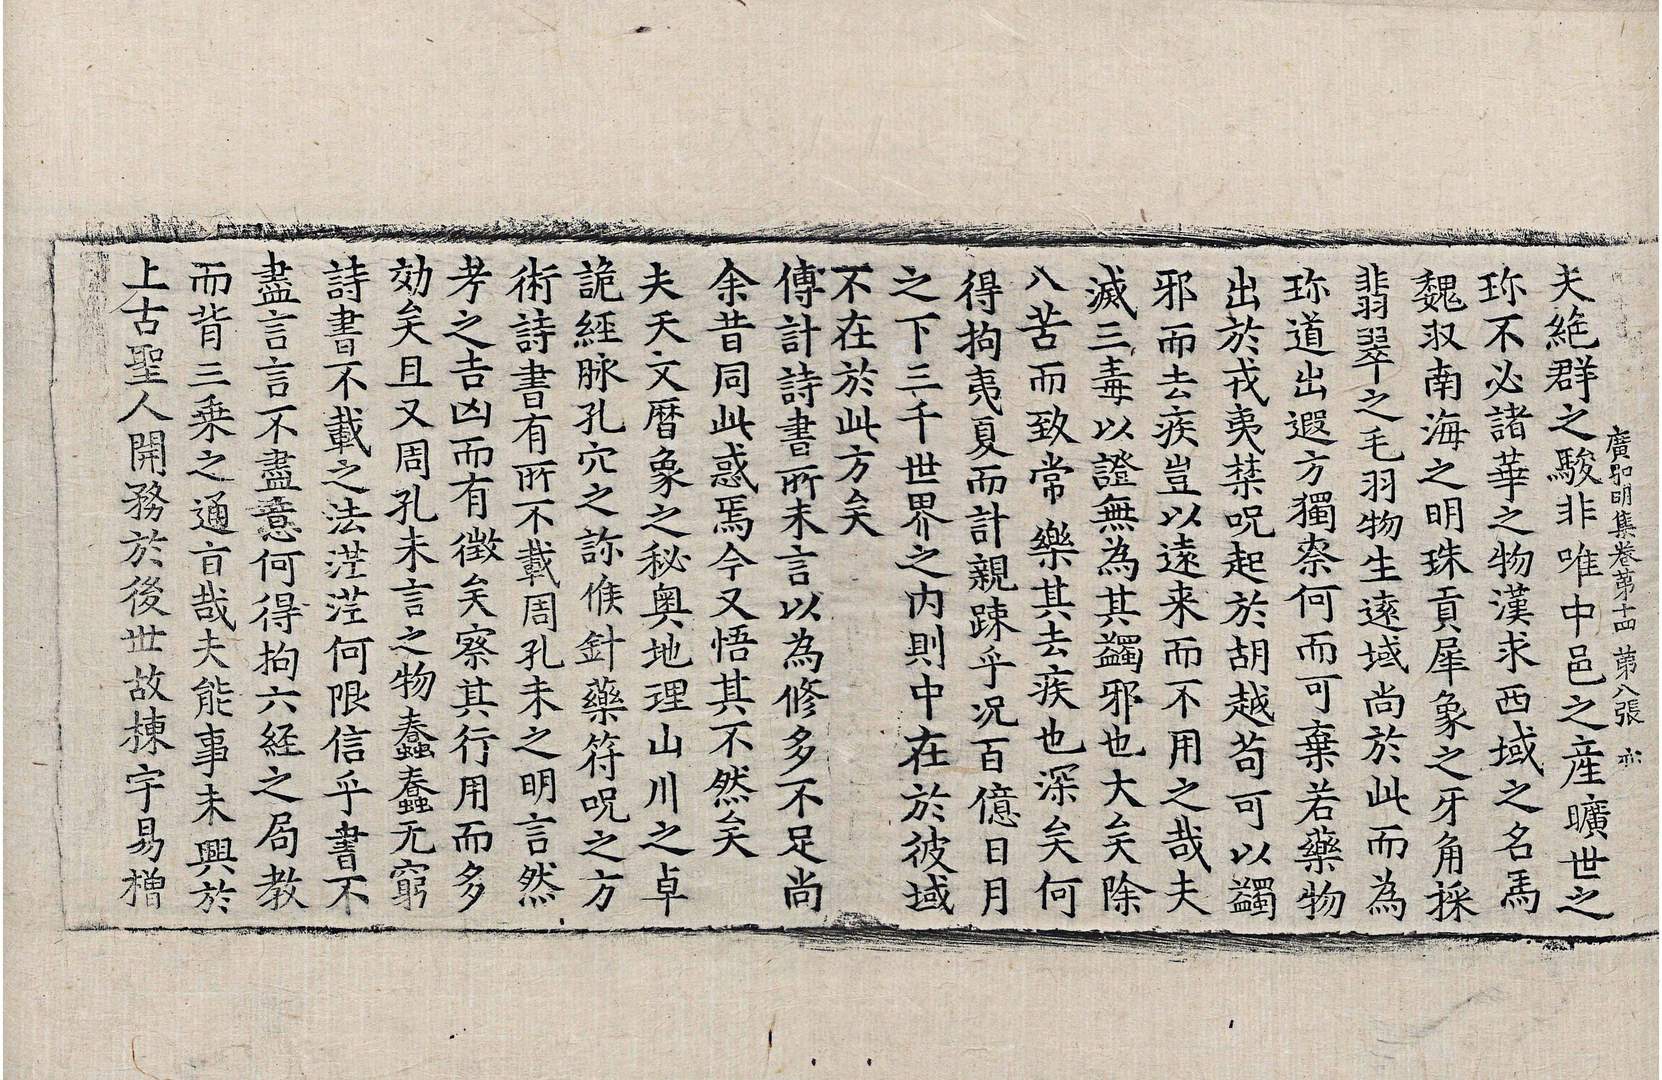 廣弘明集卷第十四 第八張
夫絶群之駿非唯中邑之産曠世之
珎不必諸華之物漢求西域之名馬
魏収南海之明珠貢犀象之牙角採
翡翠之毛羽物生遠域尚於此而為
珎道出遐方獨柰何而可棄若藥物
出於戎夷禁呪起於胡越苟可以蠲
邪而去疾豈以遠来而不用之哉夫
滅三毒以證無為其蠲邪也大矣除
八苦而致常樂其去疾也深矣何
得拘夷夏而計親踈乎况百億日月
之下三千世界之内則中在於彼域
不在於此方矣
傳計詩書所未言以為修多不足尚
余昔同此惑焉今又悟其不然矣
夫天文曆象之秘奥地理山川之卓
詭經脉孔穴之診候針藥符呪之方
術詩書有所不載周孔未之明言然
考之吉凶而有徴矣察其行用而多
効矣且又周孔未言之物蠢蠢无窮
詩書不載之法茫茫何限信乎書不
盡言言不盡意何得拘六経之局教
而背三乗之通旨哉夫能事未興於
上古聖人開務於後世故棟宇易橧